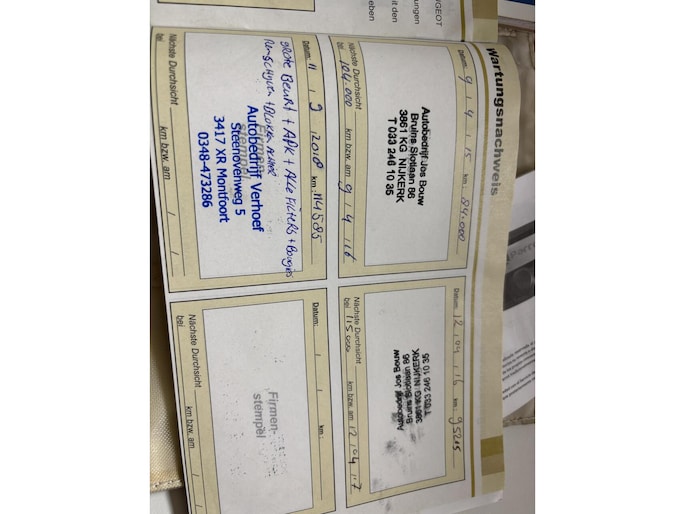 Wartungsnachweis
Datum: 9 / 4 / 15 km: 84.000
Autobedrijf Jos Bouw
Bruins Slotlaan 86
3861 KG NIJKERK
T 033 246 10 35
Nächste Durchsicht
bei 104.000 km bzw. am 9 / 4 / 16
Datum: 12 / 04 / 16 km: 95215
Autobedrijf Jos Bouw
Bruins Slotlaan 86
3861 KG NIJKERK
T 033 246 10 35
Nächste Durchsicht
bei 115000 km bzw. am 12 / 04 / 17
Datum: 11 / 2018 km: 114585
Grote Beurt + APK + Alle Filters + Bougies
Remschijven + Blokken Achter
Firmen-
stempel
Autobedrijf Verhoef
Steenovenweg 5
3417 XR Montfoort
0348-473286
Nächste Durchsicht
bei km bzw. am / /
Datum: / / km:
Firmen-
stempel
Nächste Durchsicht
bei km bzw. am / /
UGEOT
ungen
it den
eben